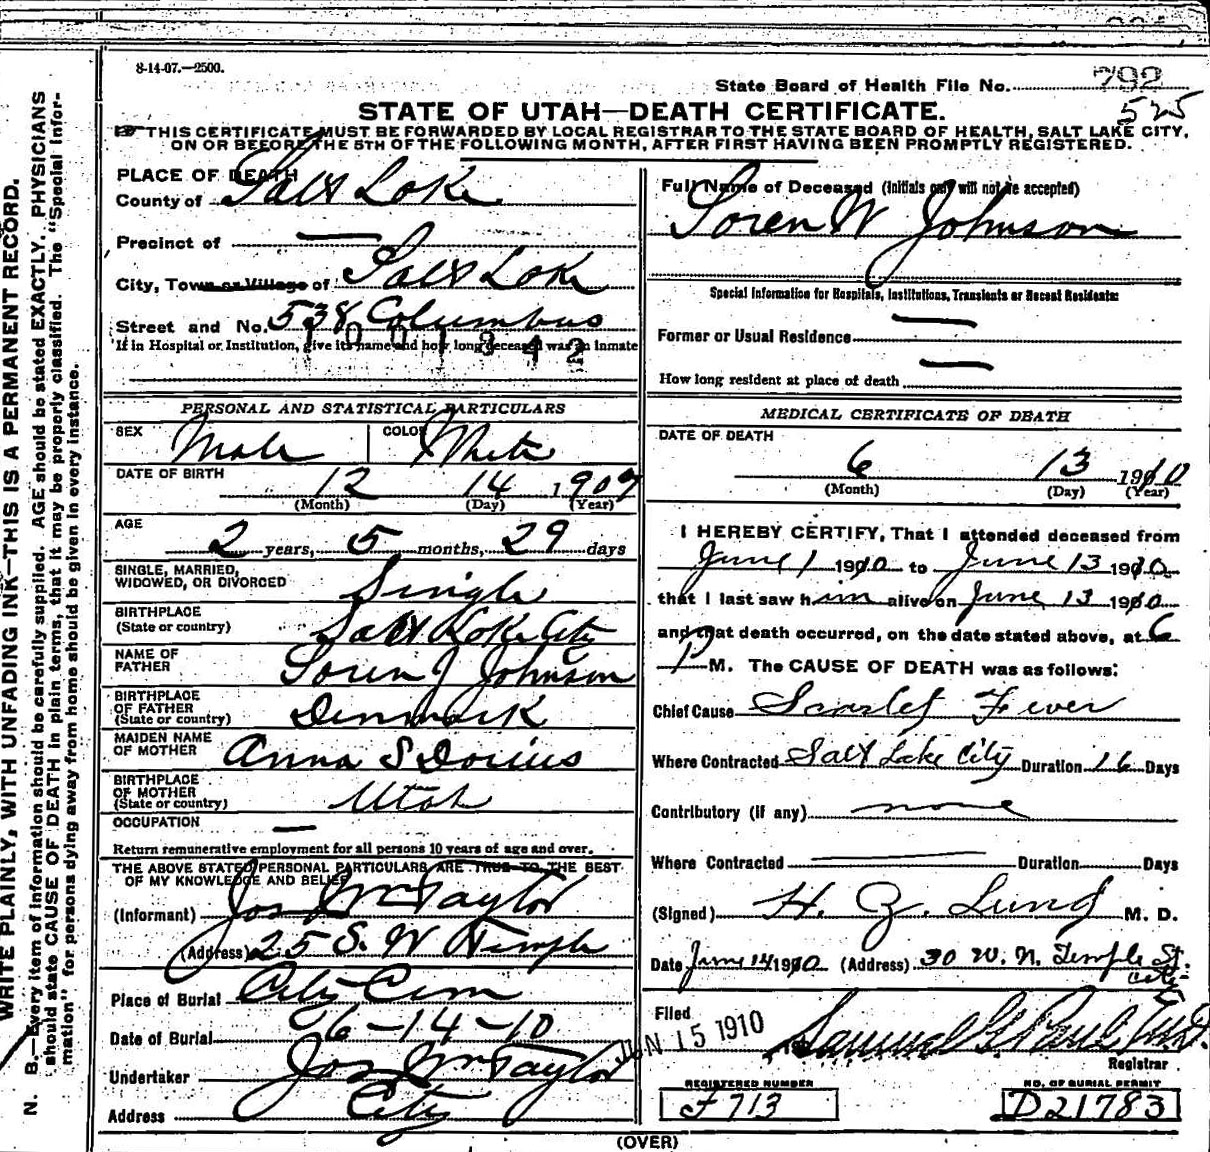 8-14-07.—2500.
State Board of Health File No. 792
525
STATE OF UTAH—DEATH CERTIFICATE.
THIS CERTIFICATE MUST BE FORWARDED BY LOCAL REGISTRAR TO THE STATE BOARD OF HEALTH, SALT LAKE CITY,
ON OR BEFORE THE 5TH OF THE FOLLOWING MONTH, AFTER FIRST HAVING BEEN PROMPTLY REGISTERED.
PLACE OF DEATH
County of Salt Lake
Precinct of —
City, Town or Village of Salt Lake
Street and No. 538 Columbus
If in Hospital or Institution, give its name and how long deceased was an inmate
1001342
Full Name of Deceased (Initials only will not be accepted)
Soren W Johnson
Special Information for Hospitals, Institutions, Transients or Recent Residents:
Former or Usual Residence —
How long resident at place of death —
PERSONAL AND STATISTICAL PARTICULARS
SEX Male COLOR White
DATE OF BIRTH
12 14 1907
(Month) (Day) (Year)
AGE
2 years, 5 months, 29 days
SINGLE, MARRIED,
WIDOWED, OR DIVORCED Single
BIRTHPLACE
(State or country) Salt Lake City
NAME OF
FATHER Soren J Johnson
BIRTHPLACE
OF FATHER
(State or country) Denmark
MAIDEN NAME
OF MOTHER Anna S Dorius
BIRTHPLACE
OF MOTHER
(State or country) Utah
OCCUPATION —
Return remunerative employment for all persons 10 years of age and over.
THE ABOVE STATED PERSONAL PARTICULARS ARE TRUE TO THE BEST
OF MY KNOWLEDGE AND BELIEF
(Informant) Jos Wm Taylor
(Address) 25 S. W Temple
Place of Burial City Cem
Date of Burial 6-14-10
Undertaker Jos Wm Taylor
Address City
MEDICAL CERTIFICATE OF DEATH
DATE OF DEATH
6 13 1910
(Month) (Day) (Year)
I HEREBY CERTIFY, That I attended deceased from
June 1 1910 to June 13 1910
that I last saw him alive on June 13 1910
and that death occurred, on the date stated above, at 6
P M. The CAUSE OF DEATH was as follows:
Chief Cause Scarlet Fever
Where Contracted Salt Lake City Duration 16 Days
Contributory (if any) none
Where Contracted — Duration Days
(Signed) H. Z. Lund M. D.
Date June 14 1910 (Address) 30 W. N. Temple St.
City
Filed
JUN 15 1910
Samuel G Paul M.D.
Registrar
REGISTERED NUMBER
F 713
NO. OF BURIAL PERMIT
D21783
(OVER)
WRITE PLAINLY, WITH UNFADING INK—THIS IS A PERMANENT RECORD.
N. B.—Every item of information should be carefully supplied. AGE should be stated EXACTLY. PHYSICIANS
should state CAUSE OF DEATH in plain terms, that it may be properly classified. The "Special Infor-
mation" for persons dying away from home should be given in every instance.